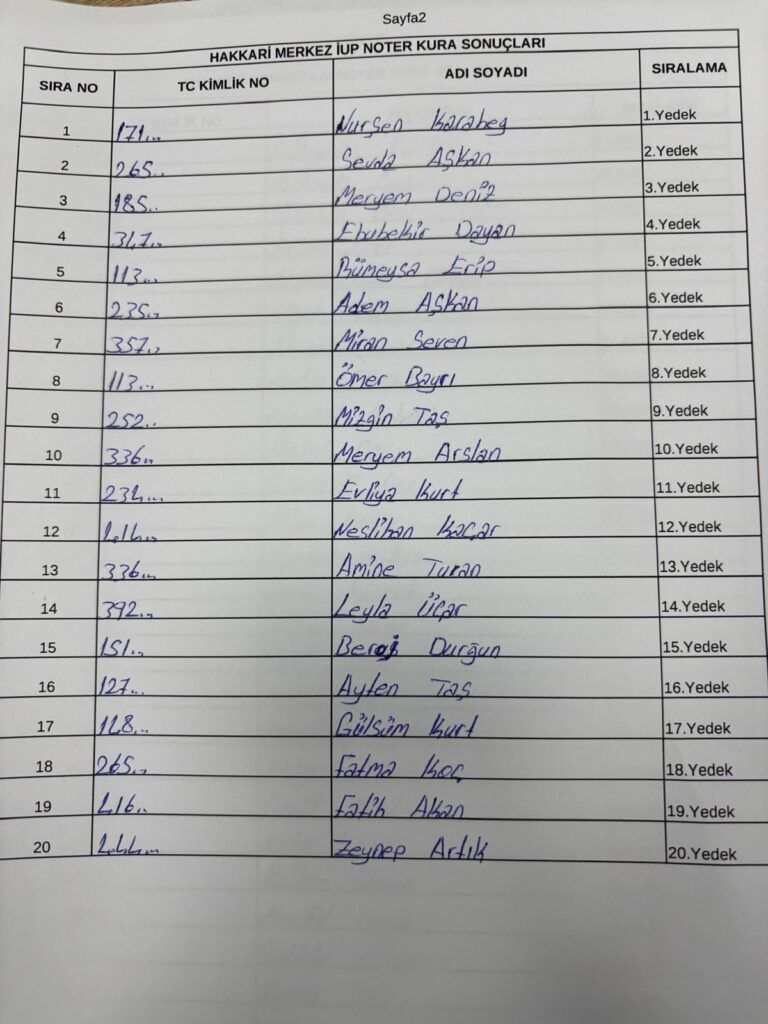 Sayfa2
HAKKARİ MERKEZ İUP NOTER KURA SONUÇLARI
SIRA NO TC KİMLİK NO ADI SOYADI SIRALAMA
1 171... Nurşen Karabeg 1.Yedek
2 265.. Sevda Aşkan 2.Yedek
3 185.. Meryem Deniz 3.Yedek
4 317.. Ebubekir Dayan 4.Yedek
5 113... Rümeysa Erip 5.Yedek
6 235.. Adem Aşkan 6.Yedek
7 357.. Miran Seven 7.Yedek
8 113... Ömer Bayrı 8.Yedek
9 252.. Mizgin Taş 9.Yedek
10 336.. Meryem Arslan 10.Yedek
11 Evliya Kurt 11.Yedek
12 Neslihan Kaçar 12.Yedek
13 336... Amine Turan 13.Yedek
14 392... Leyla Üçar 14.Yedek
15 151... Durğun 15.Yedek
16 127... Ayten Taş 16.Yedek
17 Gülsüm Kurt 17.Yedek
18 265.. Fatma Koç 18.Yedek
19 Fatih Akan 19.Yedek
20 Zeynep Artık 20.Yedek